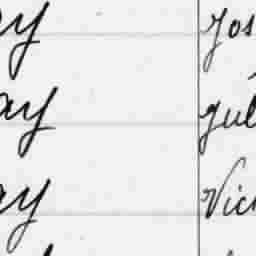 ay Jos
ay Jul
ay Vic